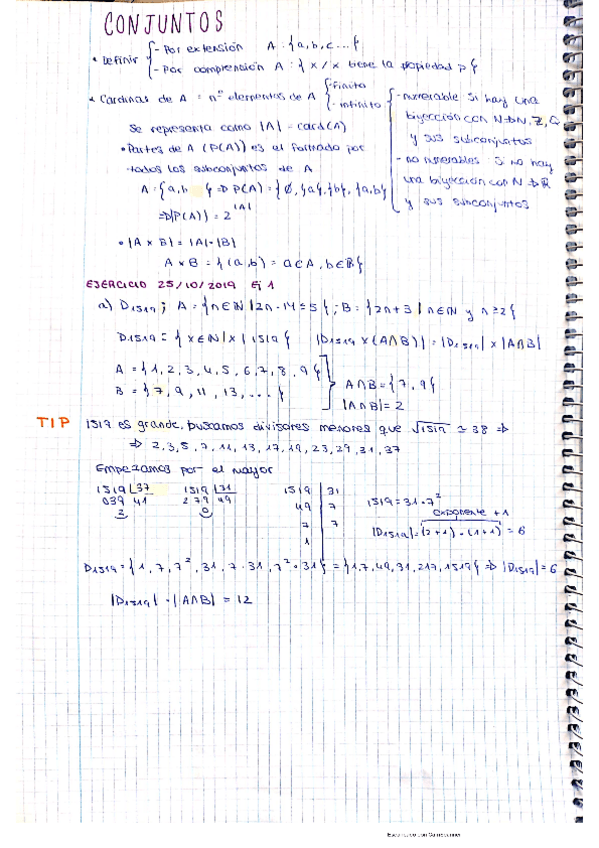 CONJUNTOS
• Definir { - Por extensión A : {a, b, c ... }
- Por comprensión A : { x / x tiene la propiedad p }
• Cardinas de A = nº elementos de A { - finito
- infinito { - numerable si hay una
biyección con N→N, Z, Q
y sus subconjuntos
- no numerables si no hay
una biyección con N → R
y sus subconjuntos
Se representa como |A| = card(A)
• Partes de A (P(A)) es el formado por
todos los subconjuntos de A
A = {a, b } ⇒ P(A) = {Ø, {a}, {b}, {a, b}}
⇒ |P(A)| = 2^|A|
• |A × B| = |A|·|B|
A × B = {(a, b) = a∈A, b∈B}
EJERCICIO 25/10/2019 Ej 1
a) D1519 ; A = {n∈N | 2n - 14 ≤ 5} ; B = {2n+3 | n∈N y n ≥ 2}
D1519 = {x∈N | x | 1519} |D1519 × (A∩B)| = |D1519| × |A∩B|
A = {1, 2, 3, 4, 5, 6, 7, 8, 9}
B = {7, 9, 11, 13, ... }
A∩B = {7, 9}
|A∩B| = 2
TIP 1519 es grande, buscamos divisores menores que √1519 ≃ 38 ⇒
⇒ 2, 3, 5, 7, 11, 13, 17, 19, 23, 29, 31, 37
Empezamos por el mayor
1519 |37 1519 |31 1519 | 31
039 41 279 49 49 | 7
2 0 7 | 7
1
1519 = 31·7²
exponente + 1
|D1519| = (2+1)·(1+1) = 6
D1519 = {1, 7, 7², 31, 7·31, 7²·31} = {1, 7, 49, 31, 217, 1519} ⇒ |D1519| = 6
|D1519|·|A∩B| = 12
Escaneado con CamScanner